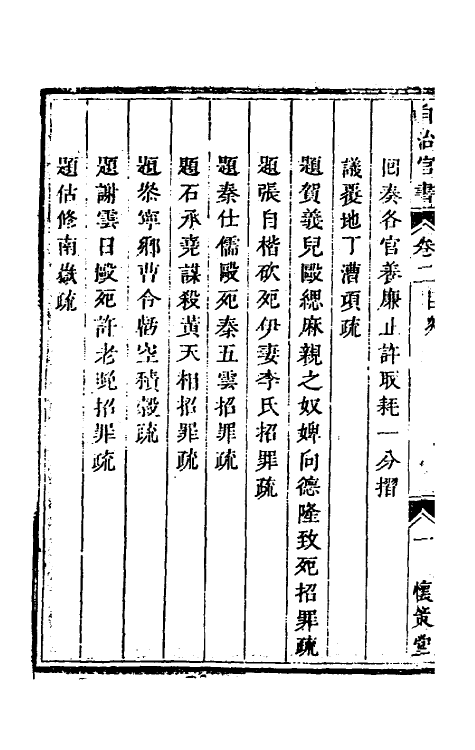 自治官書 卷二目錄 一 懷策堂
囘奏各官養廉止許取耗一分摺
議覆地丁漕項疏
題賀義兒毆緦麻親之奴婢向德隆致死招罪疏
題張自楷砍死伊妻李氏招罪疏
題秦仕儒毆死秦五雲招罪疏
題石承堯謀殺黃天相招罪疏
題叅寧鄉曹令悟空積穀疏
題謝雲日毆死許老晚招罪疏
題估修南嶽疏